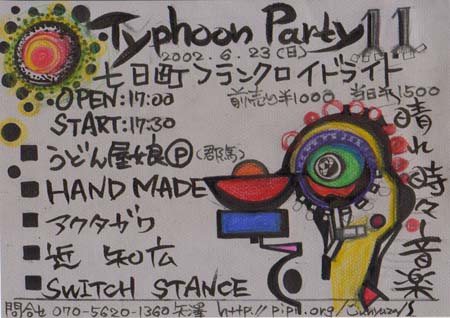 Typhoon Party 11
2002.6.23(日)
七日町フランクロイドライト
OPEN:17:00
前売り¥1000 当日¥1500
START:17:30
■うどん屋娘Ⓟ(群馬)
■HAND MADE
■アクタガワ
■近 知広
■SWITCH STANCE
晴れ時々音楽
問合せ 070-5620-1360 矢澤 http://pipn.org/